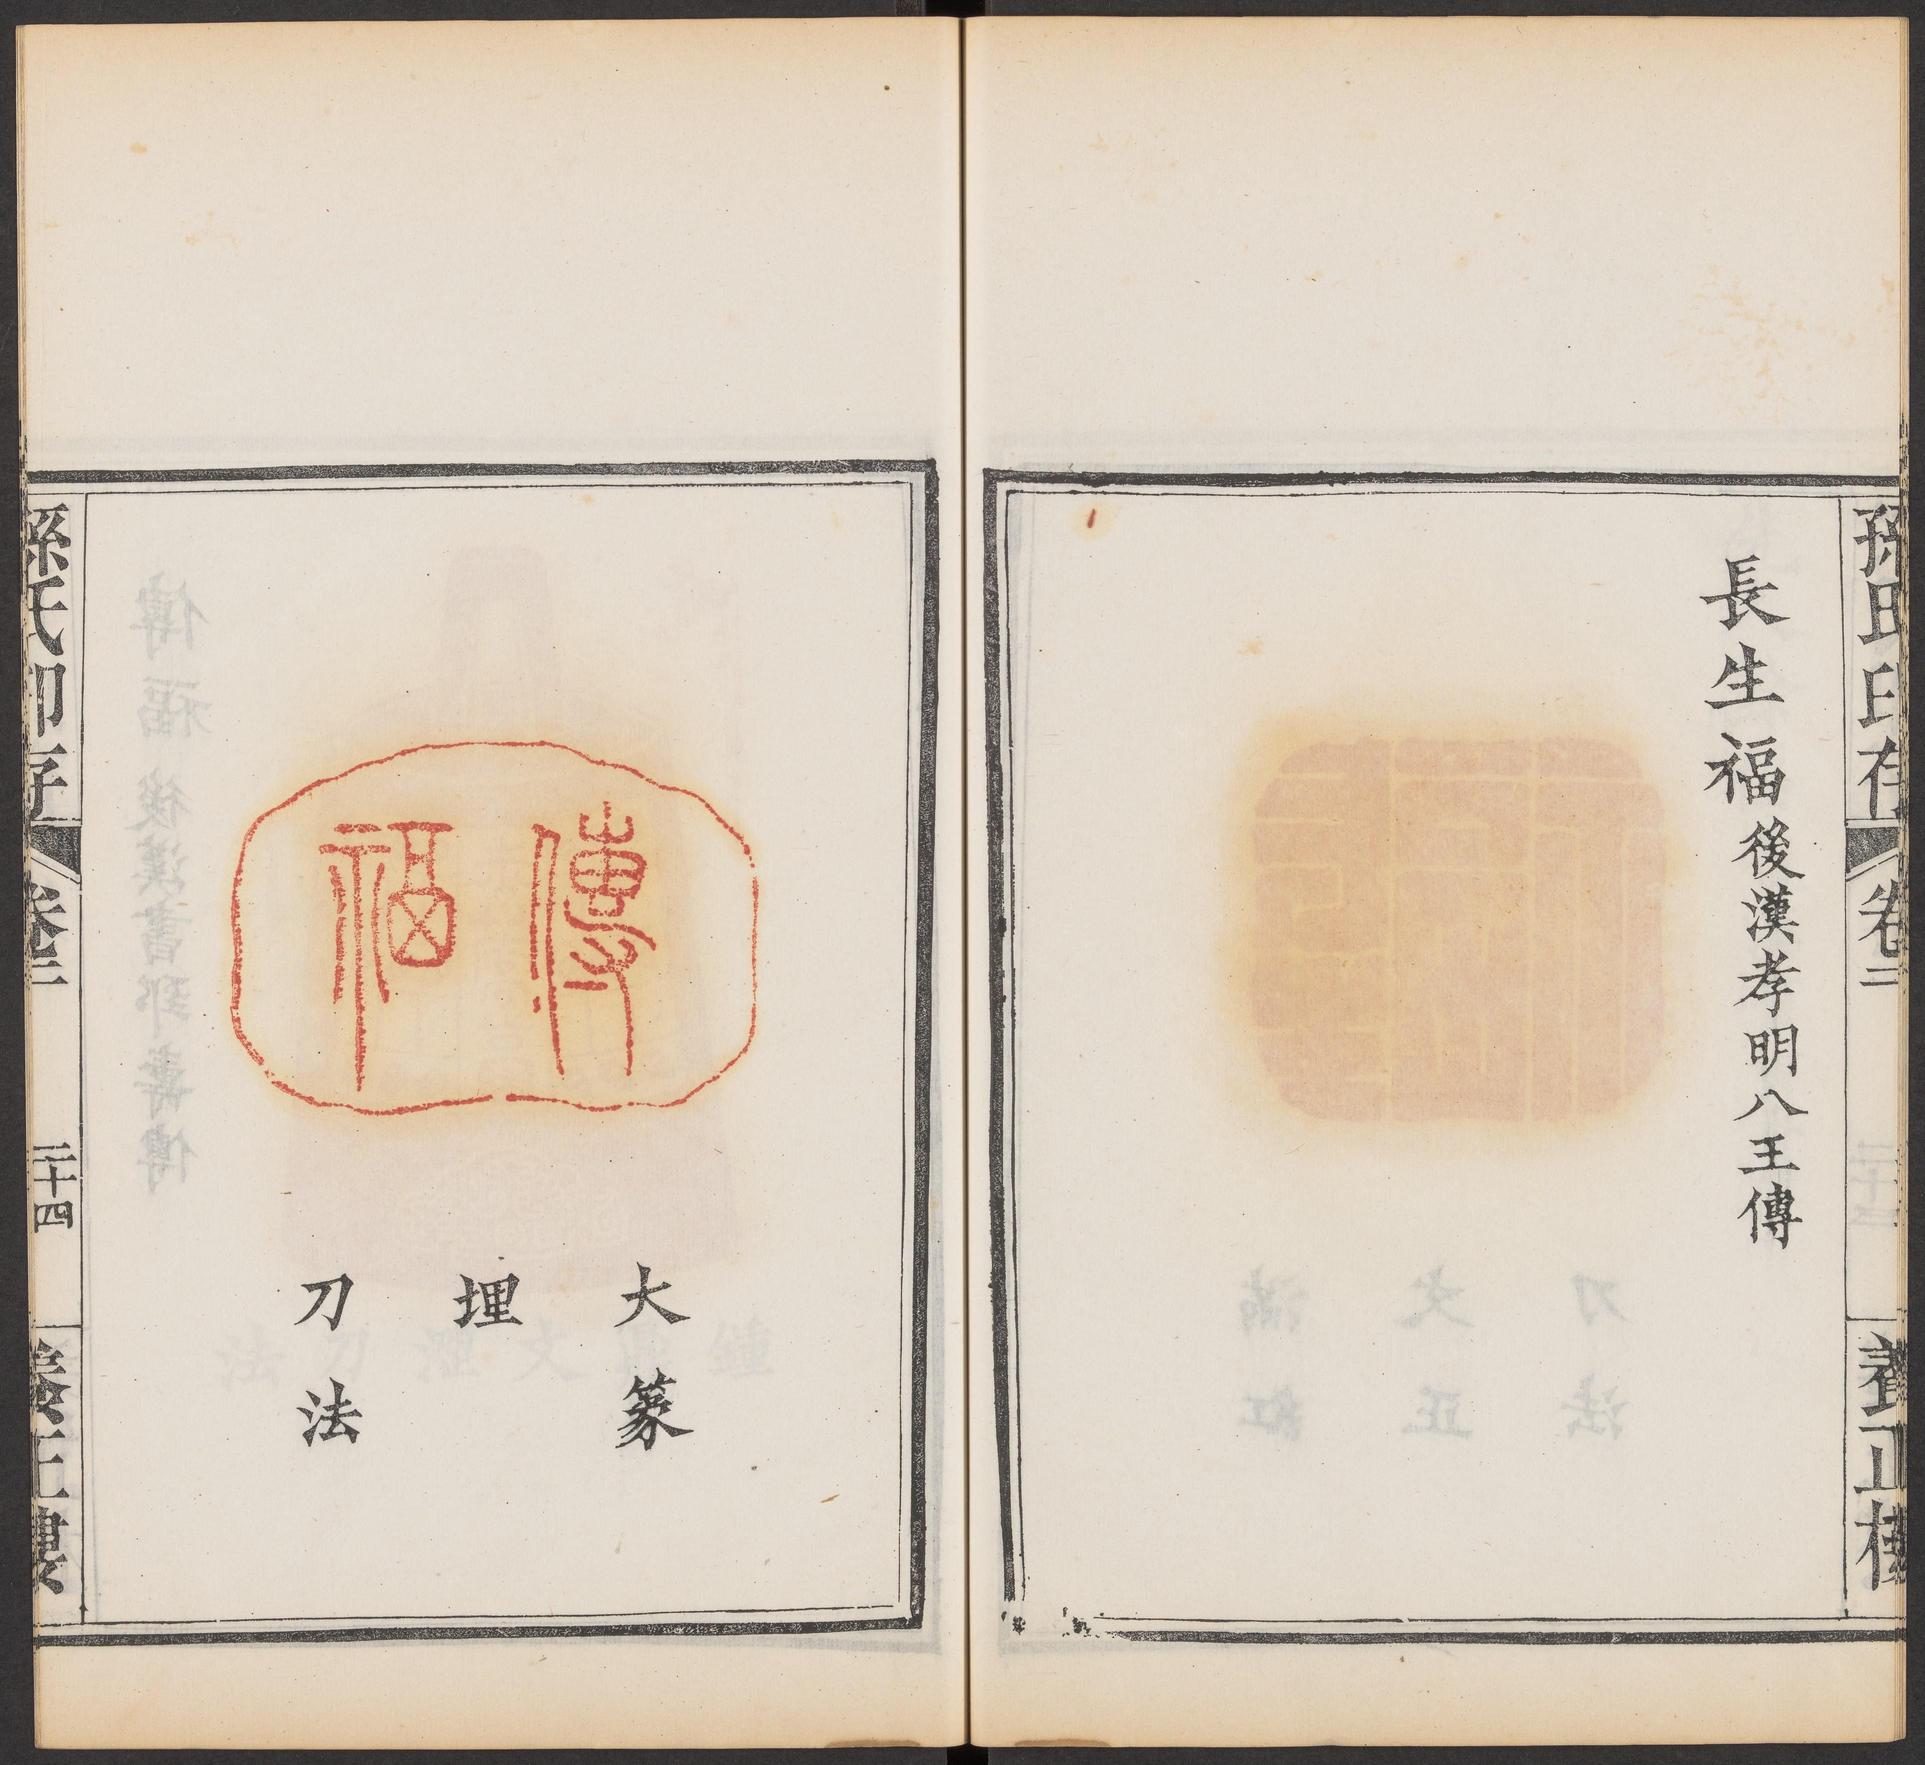 孫氏印存 卷二 養正樓
長生福 後漢孝明八王傳
傳福
大篆
埋
刀法
孫氏印存 卷二 二十四 養正樓